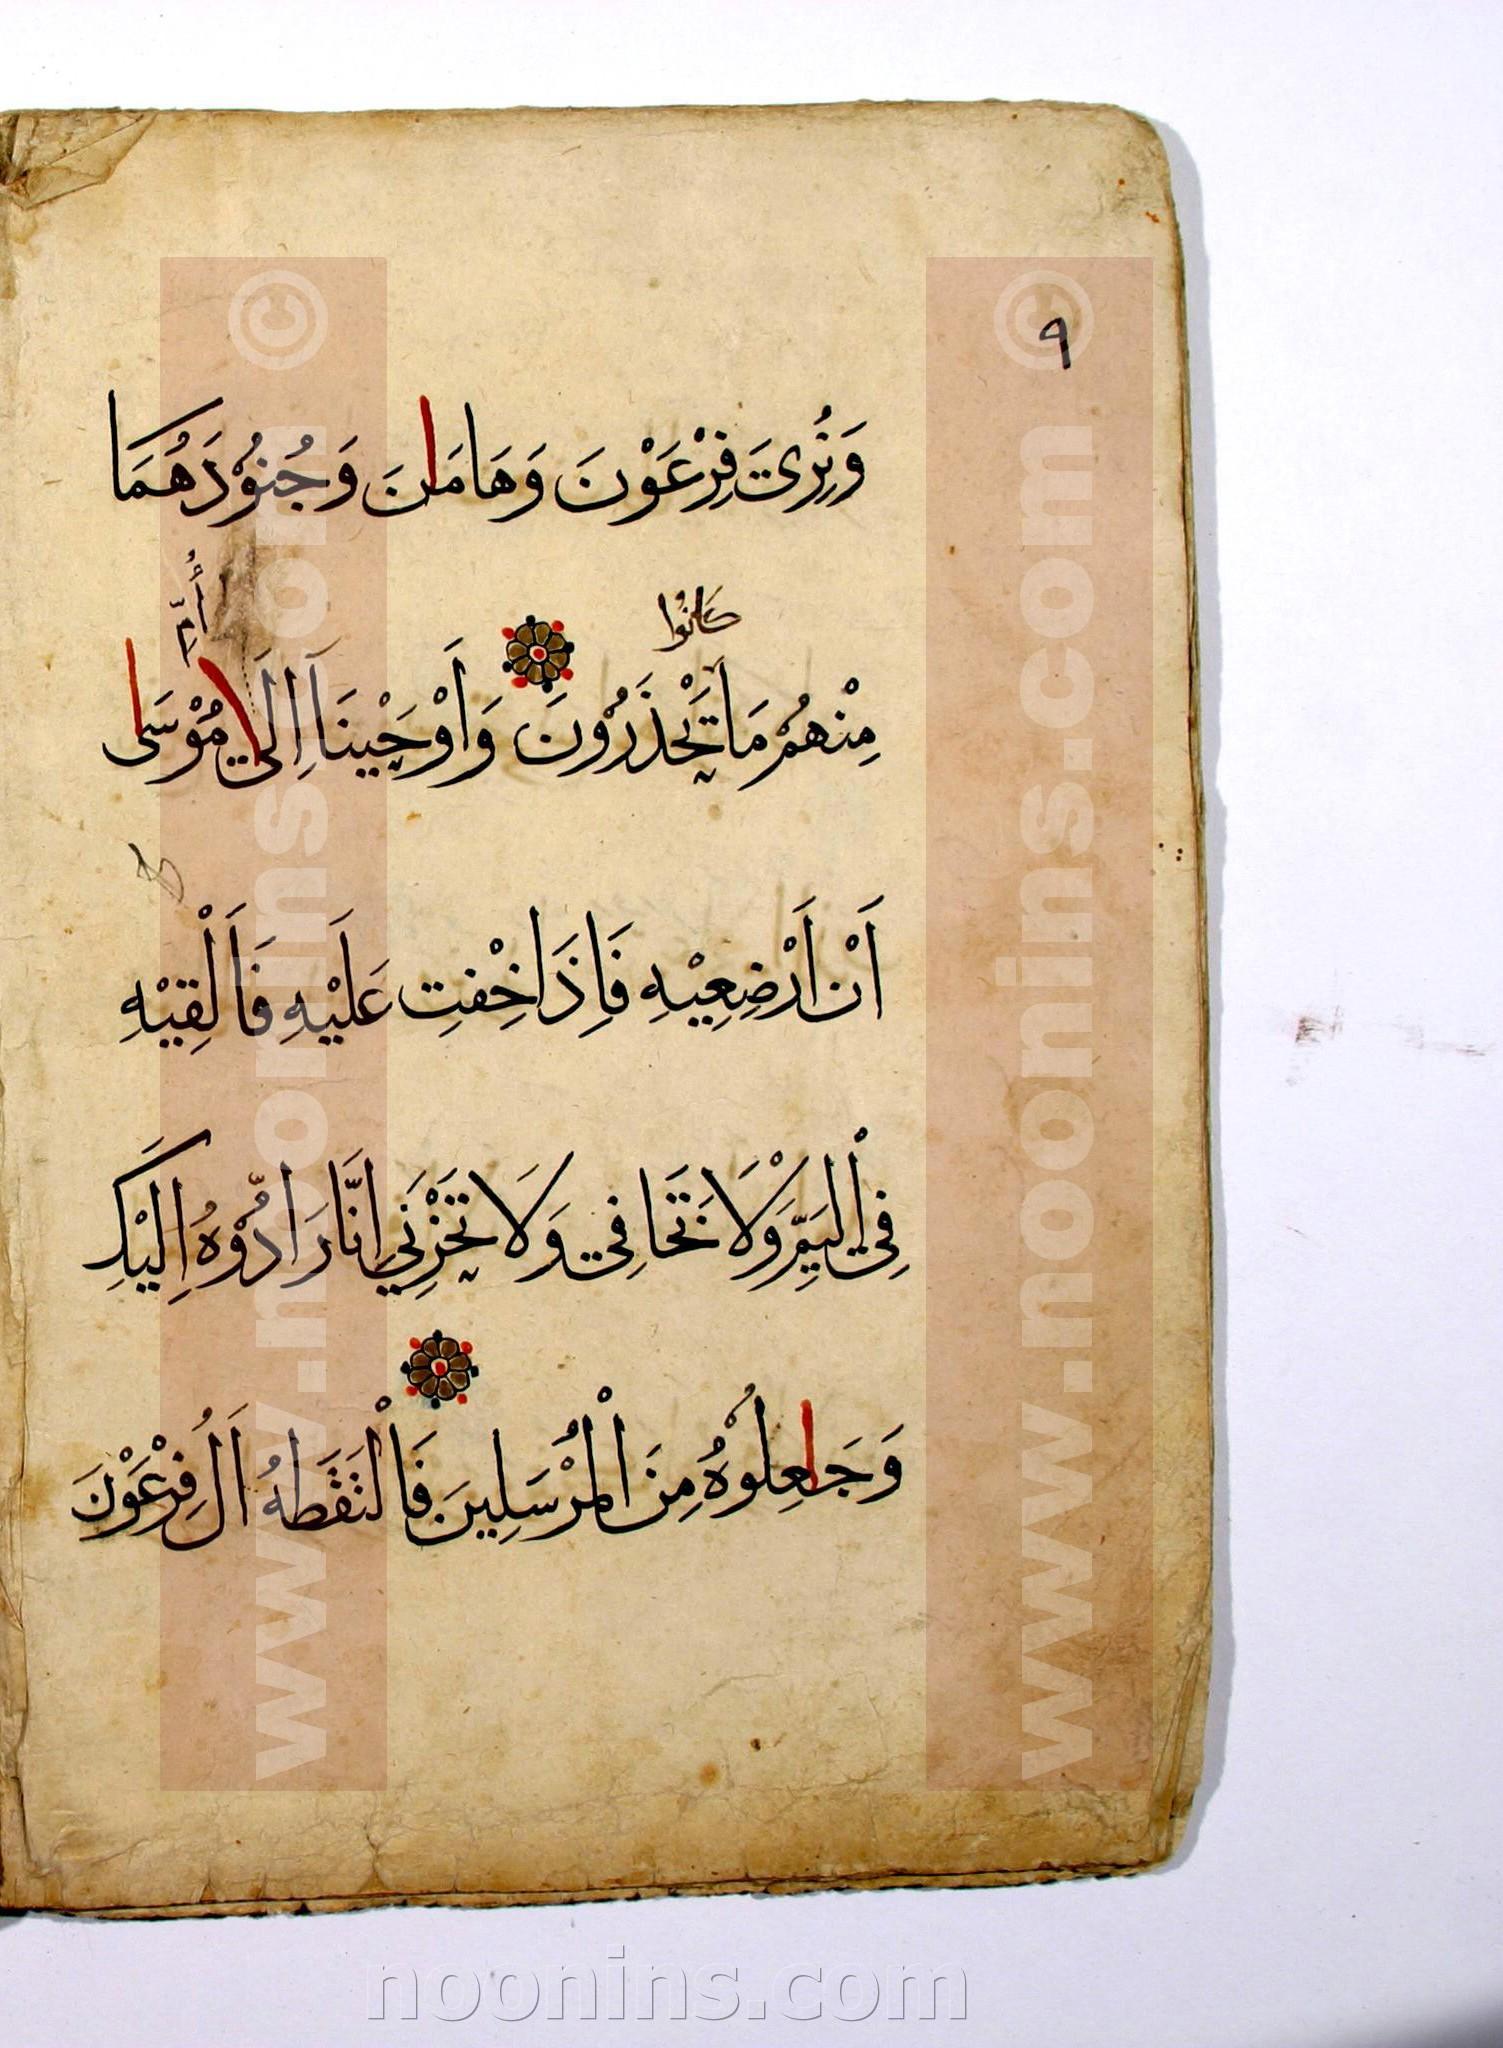 ٩
وَنُرِيَ فِرْعَوْنَ وَهَامَانَ وَجُنُوْدَهُمَا
كَانُوا
أُمِّ
مِنْهُمْ مَا يَحْذَرُوْنَ وَاَوْحَيْنَا اِلَى مُوْسَى
اَنْ اَرْضِعِيْهِ فَاِذَا خِفْتِ عَلَيْهِ فَاَلْقِيْهِ
فِي الْيَمِّ وَلَا تَخَافِي وَلَا تَحْزَنِي اِنَّا رَادُّوْهُ اِلَيْكِ
وَجَاعِلُوْهُ مِنَ الْمُرْسَلِينَ فَالْتَقَطَهُ اَلُ فِرْعَوْنَ
www.noonins.com ©
www.noonins.com ©
noonins.com